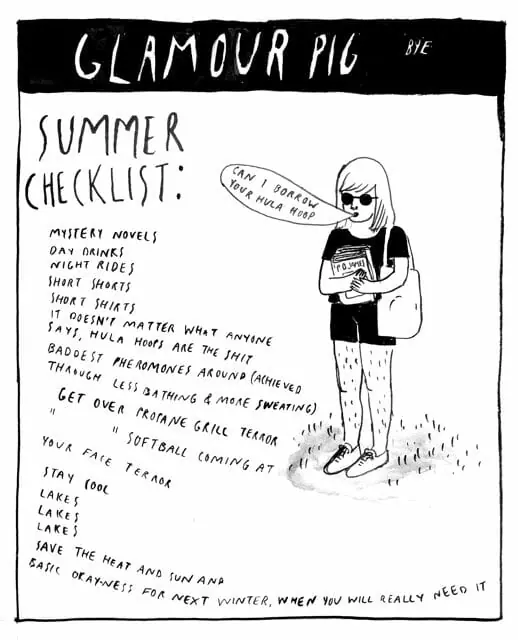 GLAMOUR PIG
BYE
SUMMER
CHECKLIST:
CAN I BORROW
YOUR HULA HOOP
P.D. JAMES
MYSTERY NOVELS
DAY DRINKS
NIGHT RIDES
SHORT SHORTS
SHORT SHIRTS
IT DOESN'T MATTER WHAT ANYONE
SAYS, HULA HOOPS ARE THE SHIT
BADDEST PHEROMONES AROUND (ACHIEVED
THROUGH LESS BATHING & MORE SWEATING)
GET OVER PROPANE GRILL TERROR
" " SOFTBALL COMING AT
YOUR FACE TERROR
STAY COOL
LAKES
LAKES
LAKES
SAVE THE HEAT AND SUN AND
BASIC OKAY-NESS FOR NEXT WINTER, WHEN YOU WILL REALLY NEED IT